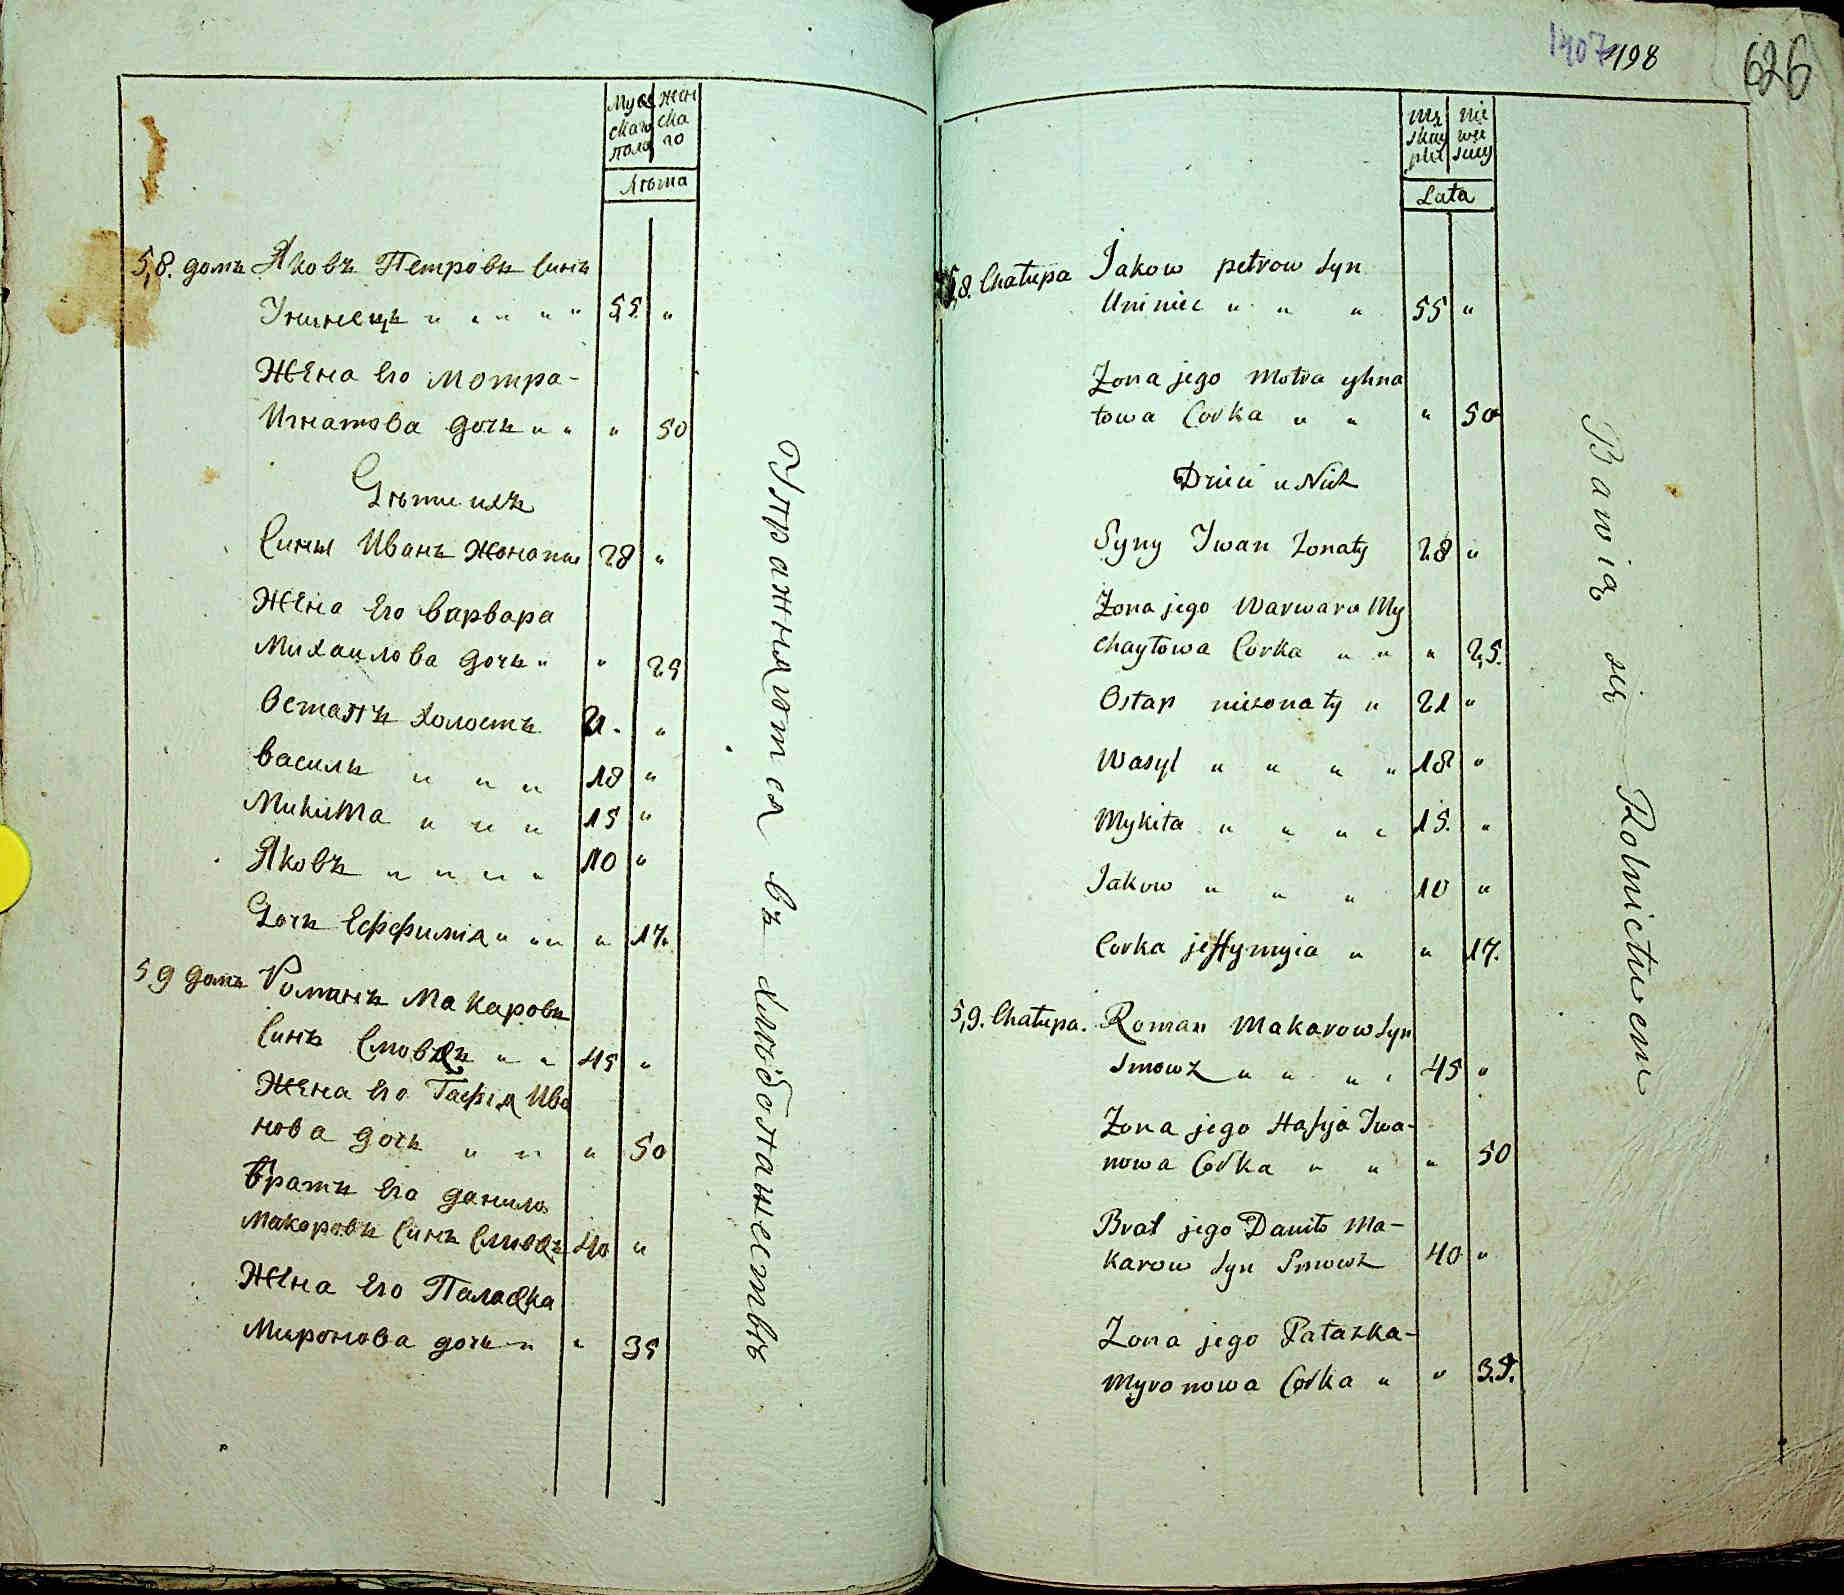 Мужскаго пола
женскаго
Лѣта
58. домъ Яковъ Петровъ Синъ
Унинецъ " " " " " 55 "
Жена Его Мотра-
Игнатова дочъ " " " 50
Дѣти ихъ
Сины Иванъ Жонаты 28 "
Жена Его Варвара
Михаилова дочъ " " 25
Остапъ холостъ 21. "
Василь " " " 18 "
Микита " " " 15 "
Яковъ " " " " 10 "
Дочъ Еффимія " " " " 17.
59 домъ Романъ Макаровъ
Синъ " " 45 "
Жена Его Гафія Ива
нова дочъ " " " 50
Братъ Его данило
Макаровъ Синъ 40 "
Жена Его
Миронова дочъ " " 35
Упражняются въ хлѣбопашествѣ
1407 198
626
Lata
58. Chałupa Jakow petrow Syn
Uniniec " " " 55 "
Żona jego Motra yhna
towa Corka " " " 50
Dzieci u Nich
Syny Iwan żonaty 28 "
Żona jego Warwara My
chayłowa Corka " " " 25.
Ostap nieżonaty " 21 "
Wasyl " " " " 18 "
Mykita " " " " 15. "
Jakow " " " 10 "
Corka jeffymyia " " 17.
59. Chałupa. Roman Makarow Syn
Smowż " " " " 45 "
Żona jego Hafyja Iwa-
nowa Corka " " " 50
Brat jego Daniło Ma-
karow Syn Smowż 40 "
Żona jego Pałażka-
Myronowa Corka " " 35.
Bawią się Rolnictwem